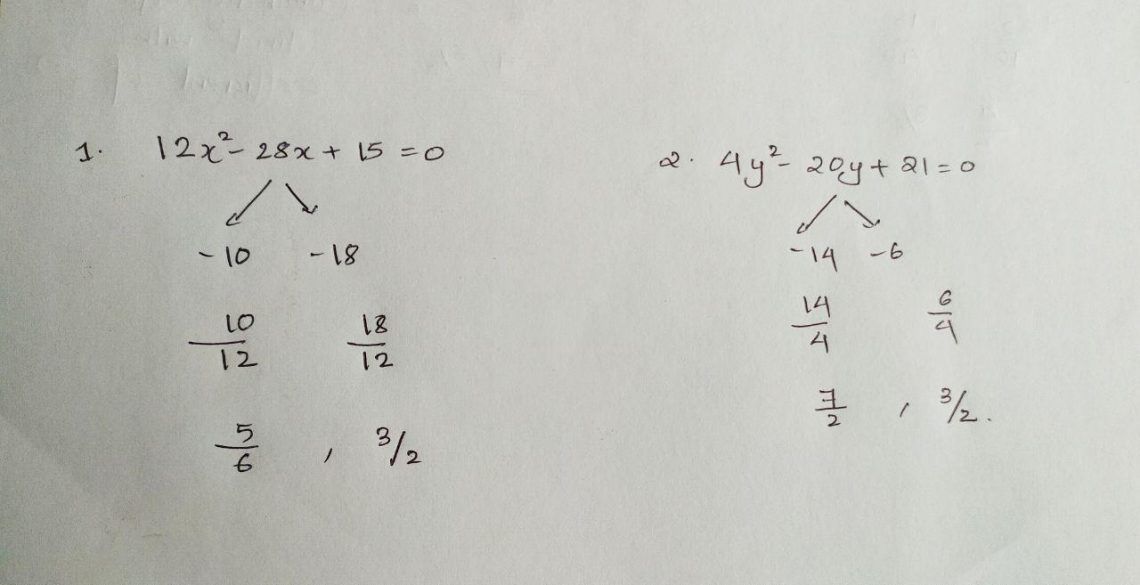 1. 12x² - 28x + 15 = 0
-10 -18
10/12 18/12
5/6 , 3/2
2. 4y² - 20y + 21 = 0
-14 -6
14/4 6/4
7/2 , 3/2.